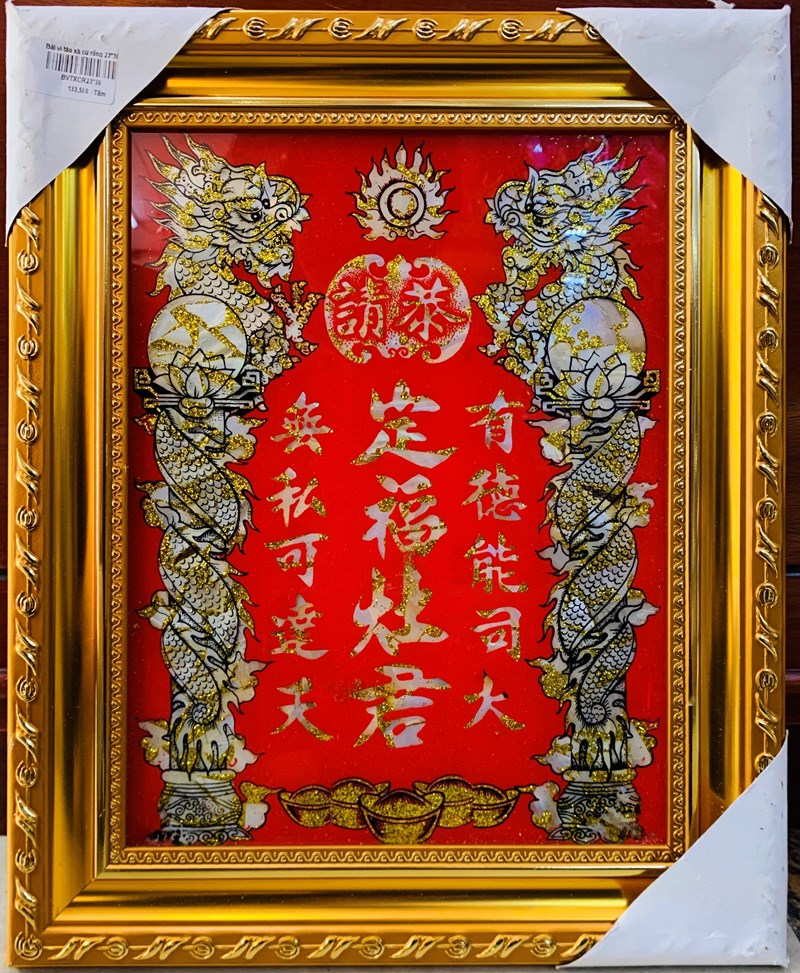 Bài vị táo xà cừ rồng 23*
133,500 /Tấm
恭請
有德能司火
定福灶君
無私可達天